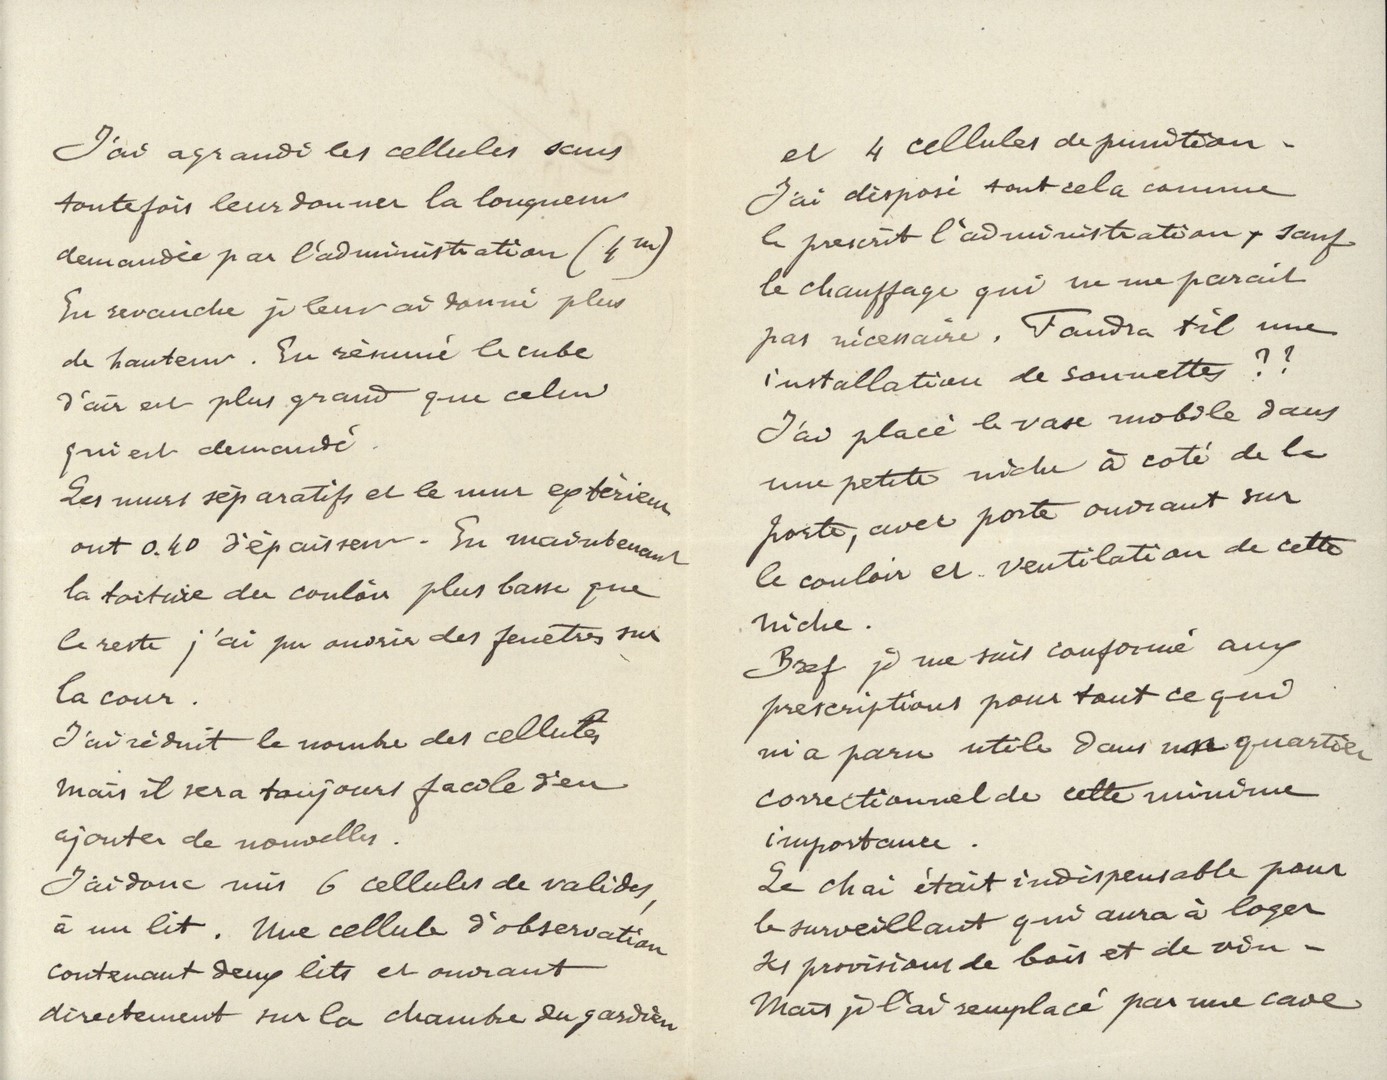 J'ai agrandi les cellules sans
toutefois leur donner la longueur
demandée par l'administration (4m)
En revanche je leur ai donné plus
de hauteur. En résumé le cube
d'air est plus grand que celui
qui est demandé.
Les murs séparatifs et le mur extérieur
ont 0.40 d'épaisseur - En maintenant
la toiture du couloir plus basse que
le reste j'ai pu ouvrir des fenêtres sur
la cour.
J'ai réduit le nombre des cellules
mais il sera toujours facile d'en
ajouter de nouvelles.
J'ai donc mis 6 cellules de valides,
à un lit. Une cellule d'observation
contenant deux lits et ouvrant
directement sur la chambre du gardien
et 4 cellules de punition -
J'ai disposé tout cela comme
le prescrit l'administration, sauf
le chauffage qui ne me parait
pas nécessaire. Faudra t il une
installation de sonnettes ??
J'ai placé le vase mobile dans
une petite niche à coté de la
porte, avec porte ouvrant sur
le couloir et ventilation de cette
niche.
Bref je me suis conformé aux
prescriptions pour tout ce qui
m'a paru utile dans un quartier
correctionnel de cette minime
importance.
Le chai était indispensable pour
le surveillant qui aura à loger
ses provisions de bois et de vin -
Mais je l'ai remplacé par une cave